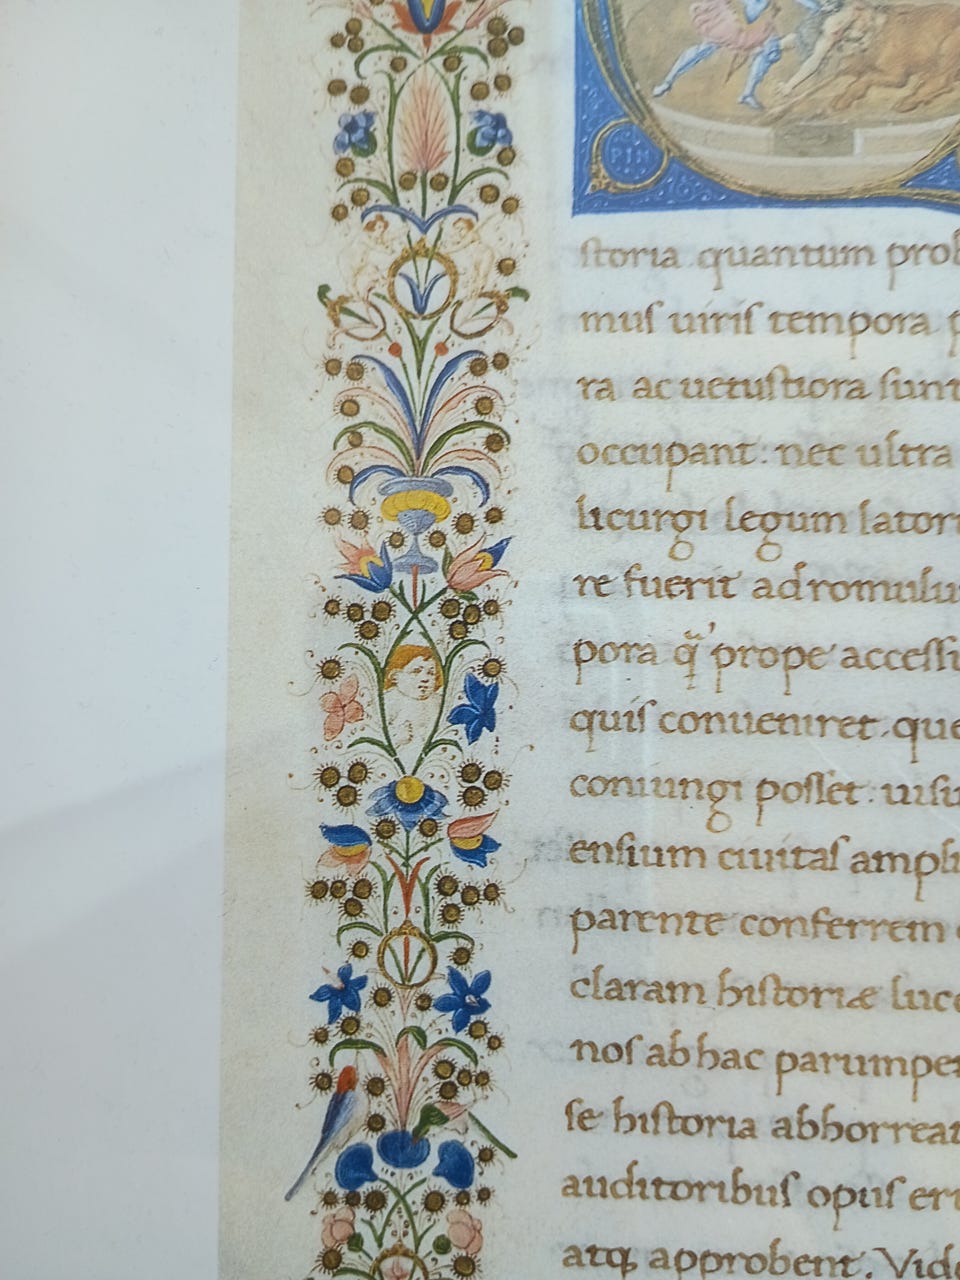 PIN
storia quantum prob
mus uiris tempora p
ra ac uetustiora sunt
occupant: nec ultra
licurgi legum latori
re fuerit ad romulu
pora q̃ prope accessi
quis conueniret. que
coniungi posset: uisu
ensium ciuitas ampli
parente conferrem
claram historiæ luce
nos ab hac parumper
se historia abhorreat
auditoribus opus eri
atq; approbent. Vide